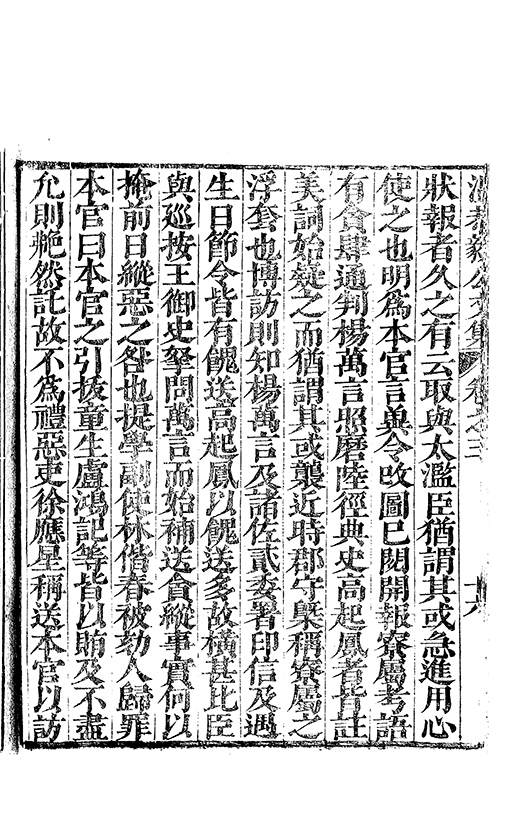 溫恭毅公文集 卷之三 十六
狀報者久之有云取與太濫臣猶謂其或急進用心
使之也明爲本官言兼令改圖巳閱開報寮屬考語
有貪肆通判楊萬言照磨陸徑典史高起鳳者皆註
美詞始疑之而猶謂其或襲近時郡守槩稱寮屬之
浮套也博訪則知楊萬言及諸佐貳委署印信及遇
生日節令皆有餽送高起鳳以餽送多故橫甚比臣
與巡按王御史拏問萬言而始補送貪縱事實何以
掩前日縱惡之咎也提學副使林偕春被劾人歸罪
本官曰本官之引拔童生盧鴻記等皆以賄及不盡
允則艴然託故不爲禮惡吏徐應星稱送本官以訪